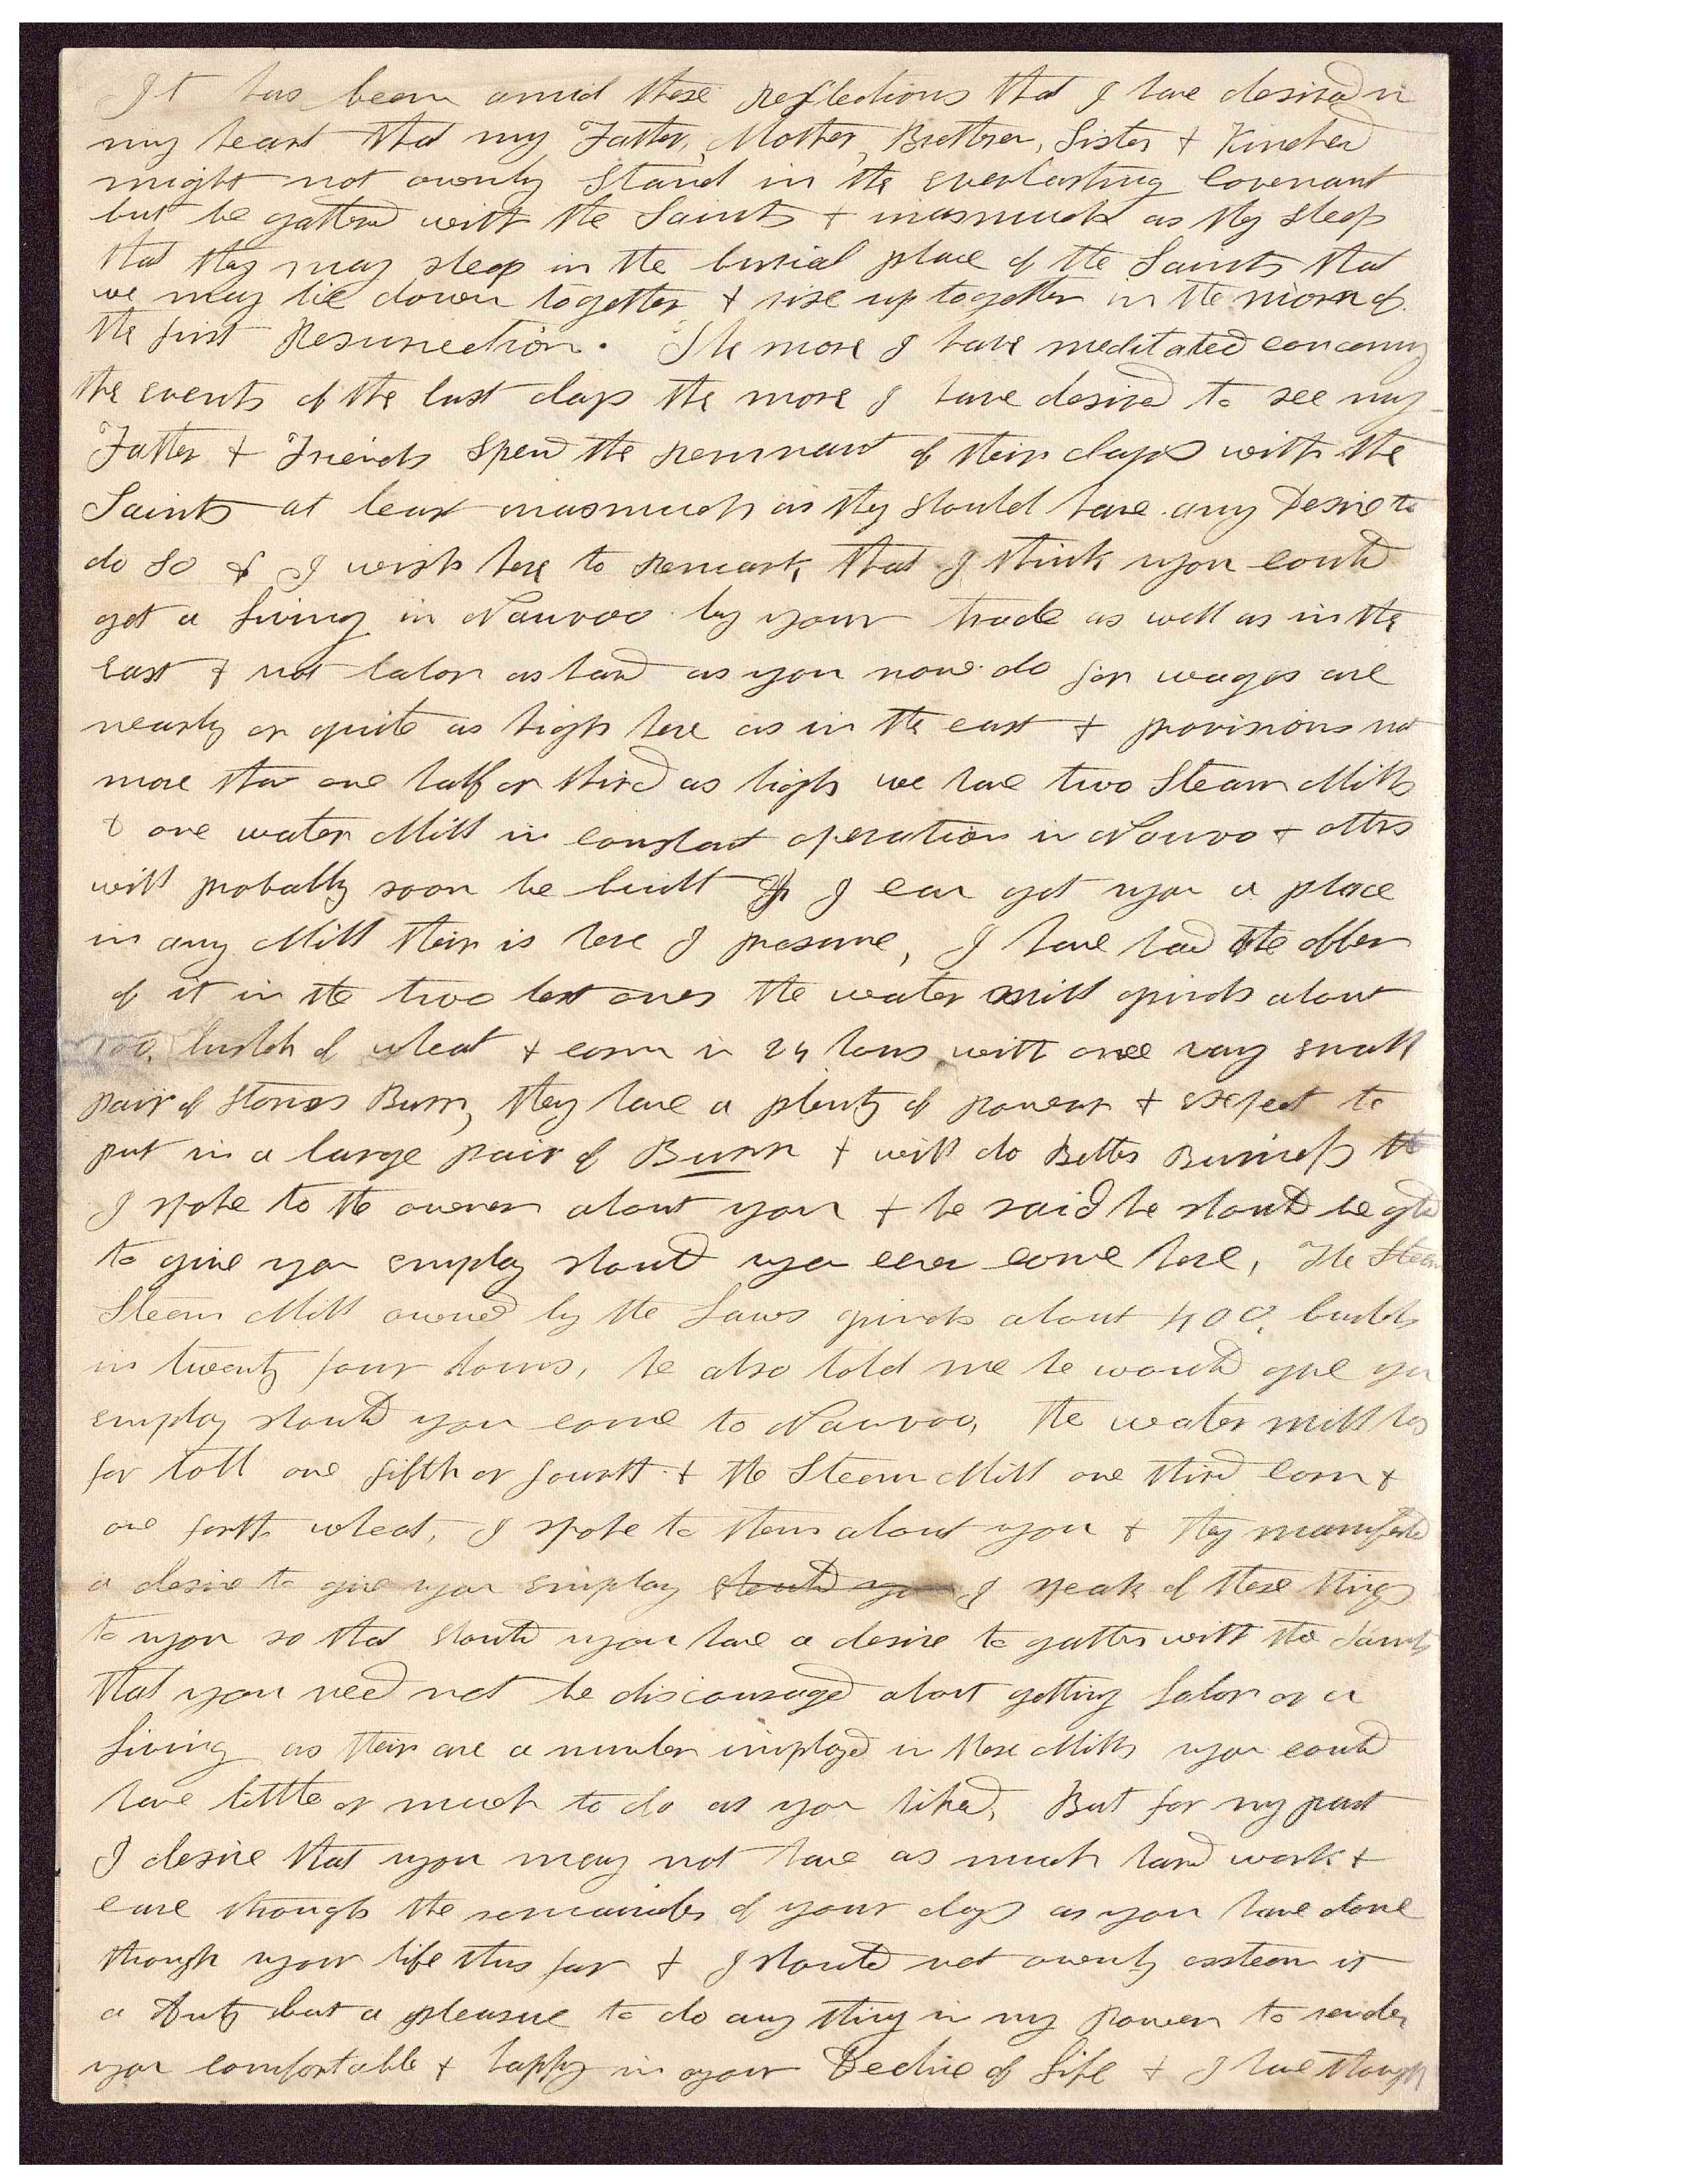 It has been amid these reflections that I have desired in
my heart that my Father, Mother, Brethren, Sister & Kindred
might not ownly stand in the everlasting covenant
but be gathered with the Saints & inasmuch as they sleep
that they may sleep in the burial place of the Saints that
we may lie down together & rise up together in the morn of
the first Resurrection. The more I have meditated concerning
the events of the last days the more I have desired to see my
Father & Friends spend the remnant of their days with the
Saints at least inasmuch as they should have any Desire to
do so & I wish here to remark that I think you could
get a living in Nauvoo by your trade as well as in the
east & not labor as hard as you now do for wages are
nearly or quite as high here as in the east & provisions not
more than one half or third as high we have two Steam Mills
& one water Mill in constant operation in Nauvoo & others
will probably soon be built I can get you a place
in any Mill their is here I presume, I have had the offer
of it in the two best ones the water mill grinds about
100, bushels of wheat & corn in 24 hours with one vary small
pair of stones Burr, they have a plenty of power & expect to
put in a large pair of Burr & will do Better Buisness
I spoke to the owner about you & he said he should be glad
to give you employ should you ever come here, The Steam
Steam Mill owned by the Laws grinds about 400, bushels
in twenty four hours, he also told me he would give you
employ should you come to Nauvoo, the water mill has
for toll one fifth or fourth & the Steam Mill one third corn &
one forth wheat, I spoke to them about you & they manifested
a desire to give you employ should you I speak of these things
to you so that should you have a desire to gather with the Saints
that you need not be discouraged about getting labor or a
living as their are a number imployed in these Mills you could
have little or much to do as you liked, But for my part
I desire that you may not have as much hard work &
care through the remainder of your days as you have done
through your life thus far & I should not ownly essteem it
a duty but a pleasure to do any thing in my power to render
you comfortable & happy in your Decline of life & I have though